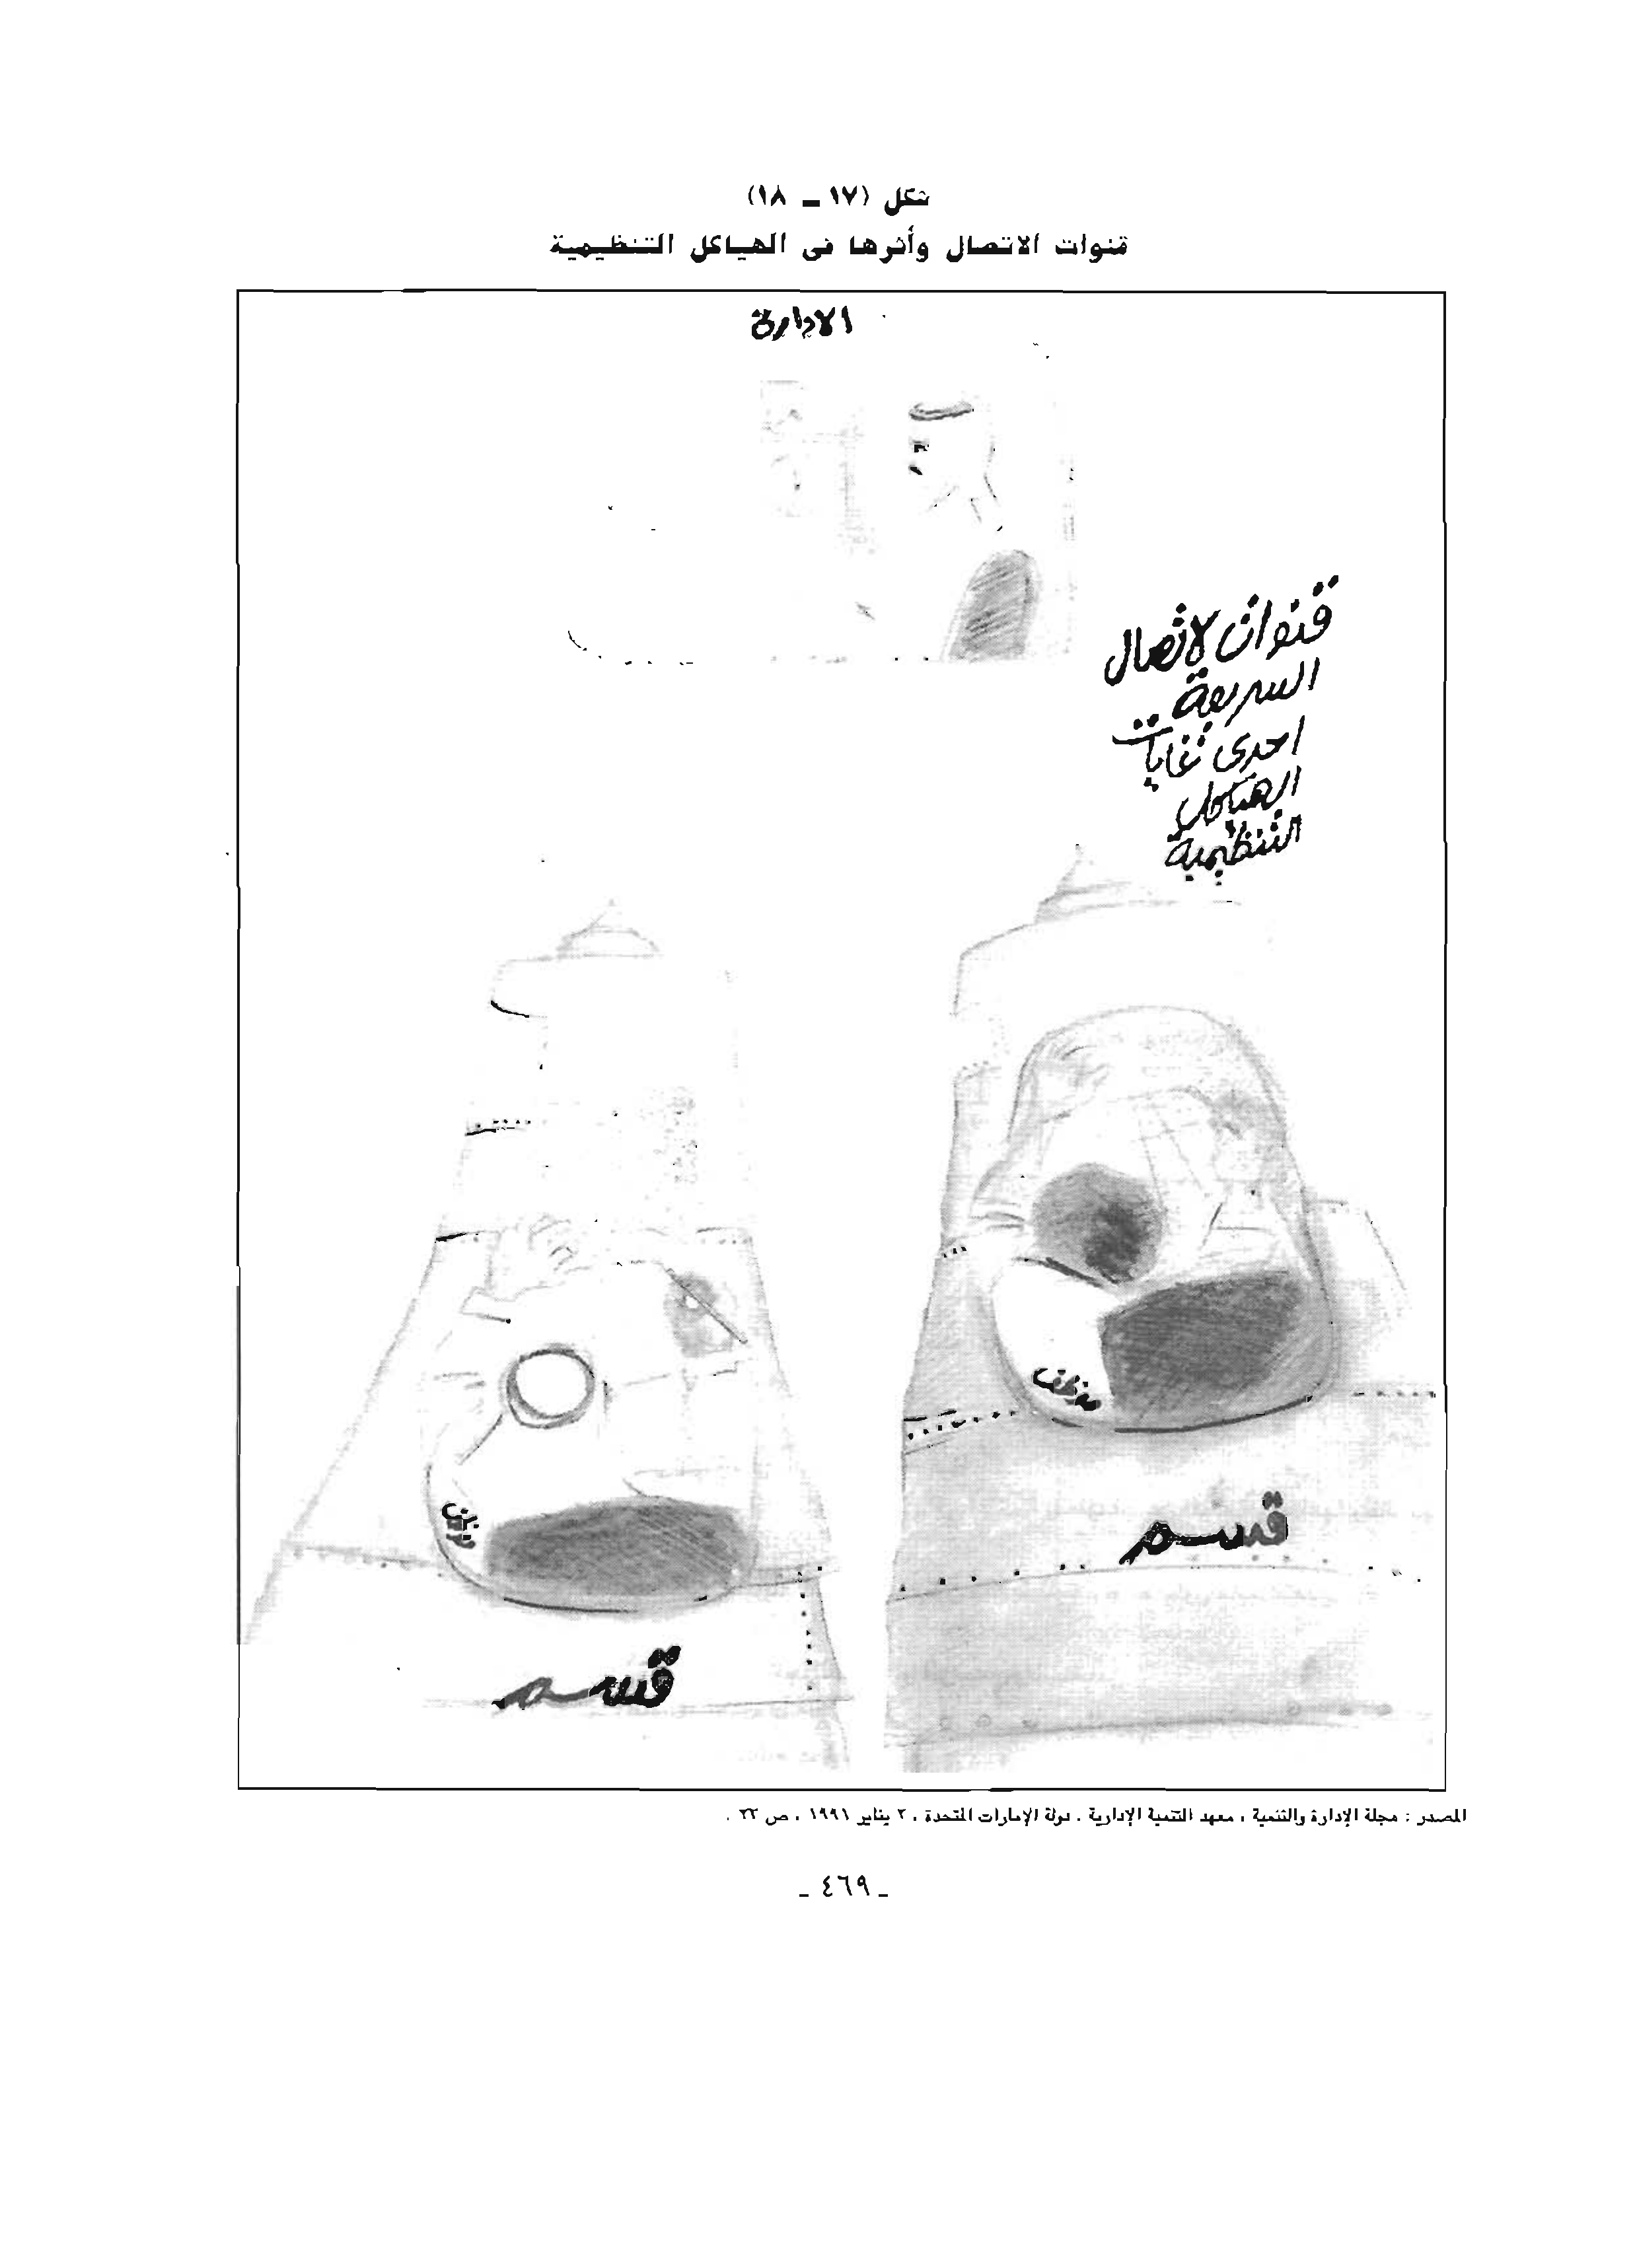 شكل (١٧ ـ ١٨)
قنوات الاتصال وأثرها فى الهياكل التنظيمية
الادارة
قنوات لاتصال
السريعة
احدى غايات
الهياكل
التنظيمية
موظف
موظف
قسم
قسم
المصدر : مجلة الإدارة والتنمية ، معهد التنمية الإدارية . دولة الإمارات المتحدة ، ٢ يناير ١٩٩١ ، ص ٢٢ .
ـ ٤٦٩ ـ